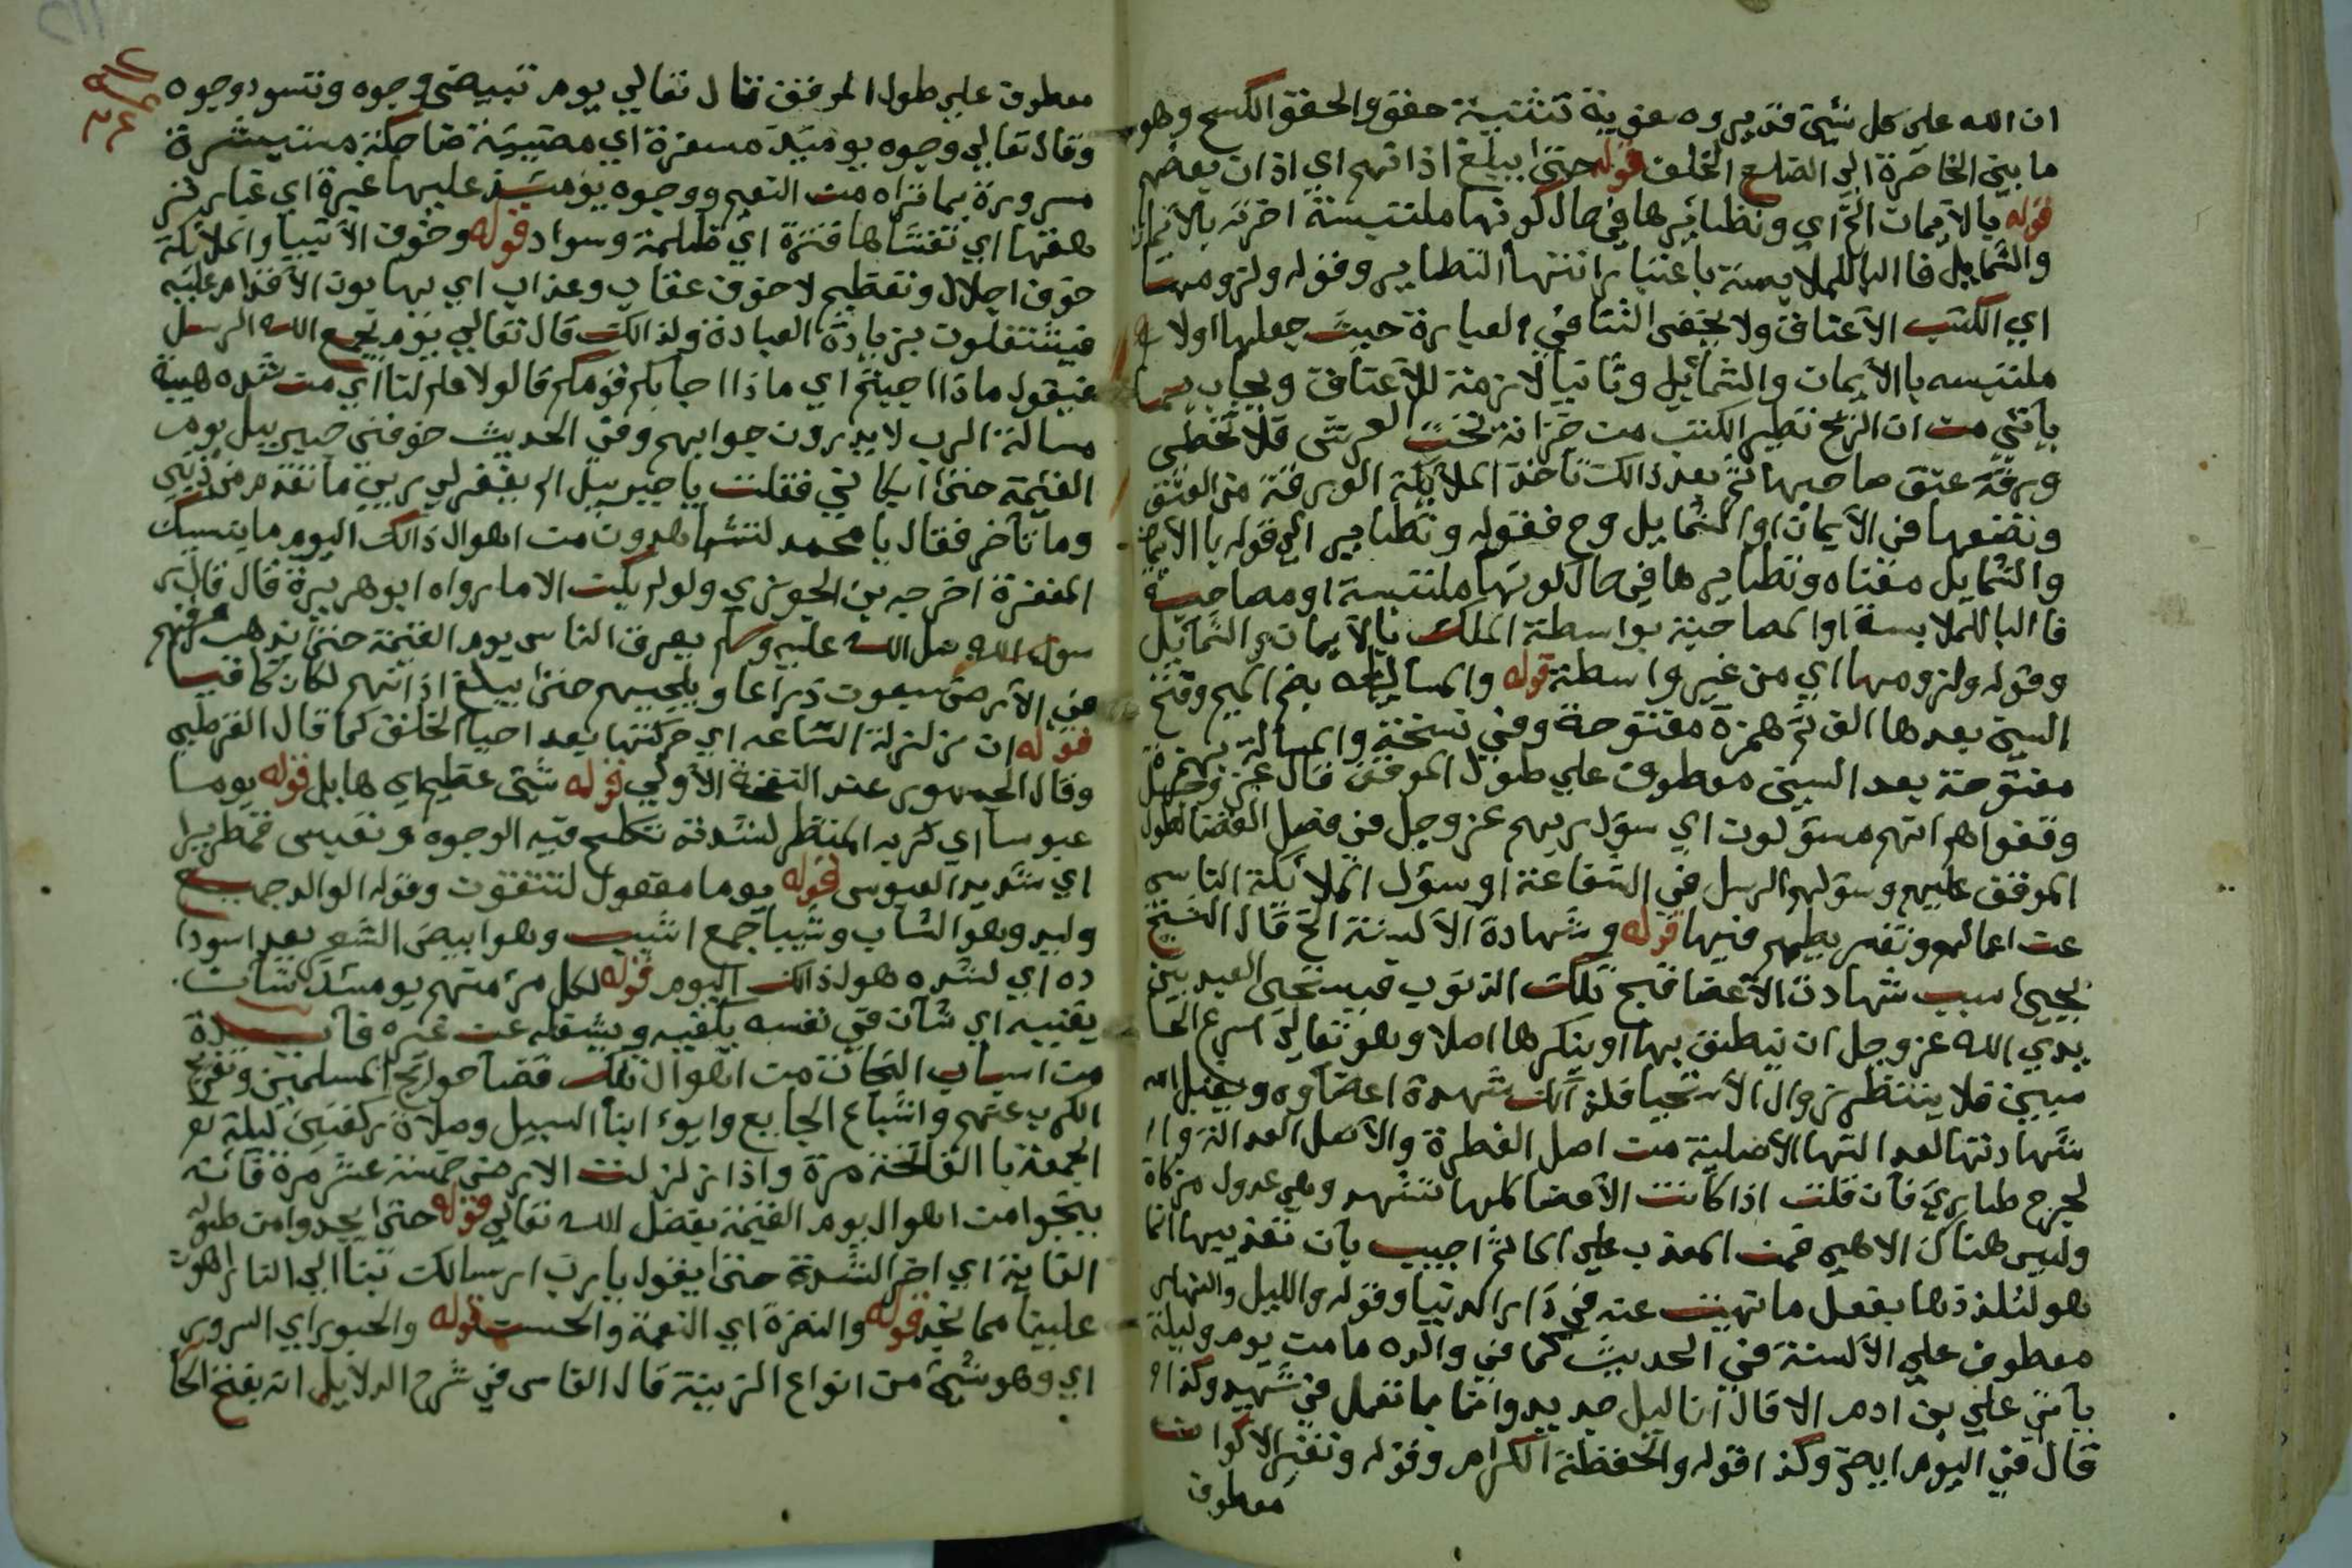 ان الله على كل شيئ قدير وه حقويه تثنية حقو والحقو الكسح وهو
ما بين الخاصرة الى الضلع الخلف قوله حتى يبلغ اذانهم اي اذان بعضهم
قوله بالايمان الخ اي ونطايرها في حال كونها ملتبسة اخرته بالايمان
والشمايل فا البا للملابسة باعتبار انتها التطاير وقوله ولزومها
اي الكتب الاعناق ولا يخفى التنافي العبارة حيث جعلها اولا
ملتبسه با الايمان والشمائيل وثانيا لازمة للاعناق ويجاب
يأتي من ان الريح تطير الكتب من خزانة تحت العرش فلا تخطي
ورقة عنق صاحبها ثم بعد ذالك تاخذ الملايكة الورقة من العنق
وتضعها في الايمان اوا الشمايل وح فقوله وتطاير الخ قوله با الايمان
والشمايل معناه وتطايرها في حال كونها ملتبسة او مصاحبة
فا البا للملابسة اوا لمصاحبة بواسطة الملك بالايمان والشمايل
وقوله ولزومها اي من غير واسطة قوله والمسايله بضم الميم وفتح
السين بعدها الف ثم همزة مفتوحة وفي نسخة والمسألة بهمزة
مفتوحة بعد السين معطوف علي طول الموقف قال عز وجل
وقفواهم انهم مسؤلون اي سؤل ربهم عزوجل في فصل القضا لطول
الموقف عليهم وسؤلهم الرسل في الشفاعة او سؤل الملائكة الناس
عن اعمالهم وتفريطهم فيها قوله وشهادة الالسنة الخ قال الشيخ
يحيى سبب شهادت الاعضا قبح تلك الذنوب فيستحى العبد بين
يدي الله عزوجل ان ينطق بها او ينكرها اصلا وهو تعالى اسرع الحا
سبين فلا ينتظر زوال الاستحيا فلذالك شهدة اعضاوه ويقبل الله
شهادتها لعدالتها الاصلية من اصل الفطرة والاصل العدالة وا
لجرح طاري فان قلت اذا كانت الاعضا كلها تشهد وهي عدول مزكاة
وليس هناك الا هي فمن المعذب علي الماثم اجيب بان تعذيبها انما
هو لتلذذها بفعل ما نهيت عنه في دار الدنيا وقوله والليل والنهار
معطوف علي الالسنة في الحديث كما في والده ما من يوم وليلة
ياتي علي بن ادم الا قال انا ليل جديد وانا بما تعمل في شهيد وكذا
قال في اليوم ايضا وكذا قوله والحفظة الكرام وقوله وتغير الاكوان
معطوف
معطوف علي طول الموقف قال تعالي يوم تبيض وجوه وتسود وجوه
وقال تعالي وجوه يوميذ مسفرة اي مضيئة ضاحكة مستبشرة
مسرورة بما تراه من النعيم ووجوه يومئذ عليها غبرة اي غبار تر
هقها اي تغشاها قترة اي ظلمة وسواد قوله وخوف الانبيا والملائكة
خوف اجلال وتعظيم لا خوف عقاب وعذاب اي يهابون الاقدام عليه
فيشتغلون بزيادة العبادة ولذالك قال تعالي يوم يجمع الله الرسل
فيقول ماذا اجيبتم اي ماذا اجابكم قومكم قالوا لا علم لنا اي من شده هيبة
مسالة الرب لا يدرون جوابهم وفي الحديث خوفني جبريل يوم
القيمة حتى ابكاني فقلت يا جبريل الم يغفر لي ربي ما تقدم من ذنبي
وما تأخر فقال يا محمد لتشاهدون من اهوال ذالك اليوم ما ينسيك
المغفرة اخرجه بن الجوزي ولو لم يكن الا ما رواه ابو هريرة قال قال ر
سول الله صل الله عليه وسلم يعرق الناس يوم القيمة حتى يذهب عرقهم
في الارض سبعون ذراعا ويلجمهم حتى يبلغ اذانهم لكان كافيا
قوله ان زلزلة الساعه اي حركتها بعد احيا الخلق كما قال القرطبي
وقال الجمهور عند النفخة الاولي قوله شئ عظيم اي هايل قوله يوما
عبوسا اي كريه المنظر لشدته تكلح فيه الوجوه وتعبس قمطريرا
اي شديد العبوس قوله يوما مفعول لتتقون وقوله الوالد جمع
وليد وهو الشاب وشيبا جمع اشيب وهو ابيض الشعر بعد اسودا
ده اي لشده هول ذالك اليوم قوله لكل مرء منهم يومئذ شان
يغنيه اي شان في نفسه يكفيه ويشغله عن غيره فايدة
من اسباب النجاة من اهوال تلك قضا حوايج المسلمين وتفريج
الكرب عنهم واشباع الجايع وايوء ابنا السبيل وصلاة ركعتين ليلة
الجمعة با الفاتحة مرة واذا زلزلت الارض خمسة عشر مرة فانه
ينجوا من اهوال يوم القيمة بفضل الله تعالي قوله حتى يجدوا من طول
الغاية اي اخر الشدة حتى يقول يا رب ارسالك بنا الي النار اهون
علينا مما نجد قوله والنضرة اي النعمة والحسن قوله والحبور اي السرور
اي وهو شيئ من انواع الزينة قال الفاسي في شرح الدلايل انه بفتح الحا